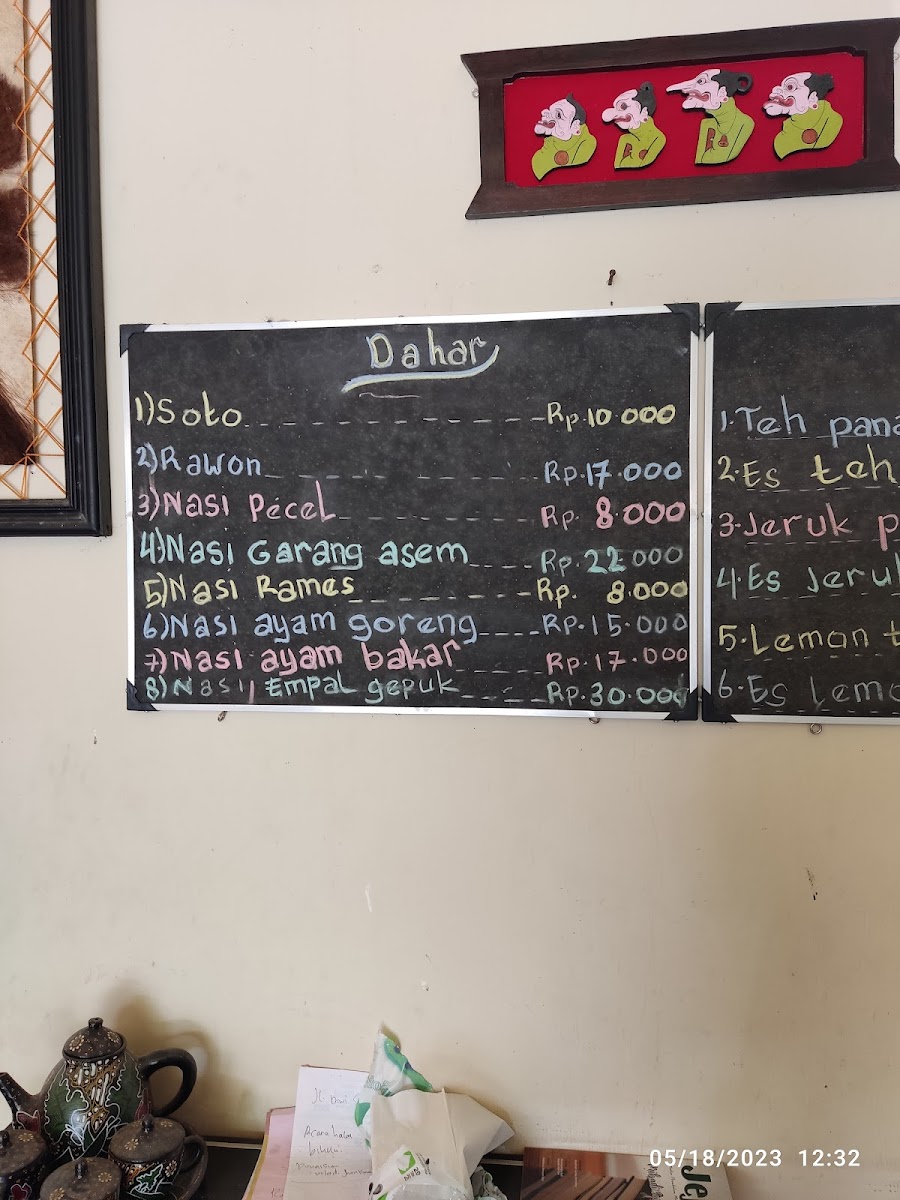 Dahar
1) Soto Rp. 10.000
2) Rawon Rp. 17.000
3) Nasi Pecel Rp. 8.000
4) Nasi Garang asem Rp. 22 000
5) Nasi Rames Rp. 8.000
6) Nasi ayam goreng Rp. 15.000
7) Nasi ayam bakar Rp. 17.000
8) Nasi, Empal gepuk Rp. 30.000
1. Teh pana
2. Es teh
3. Jeruk p
4. Es Jeru
5. Lemon t
6. Es Lemo
05/18/2023 12:32